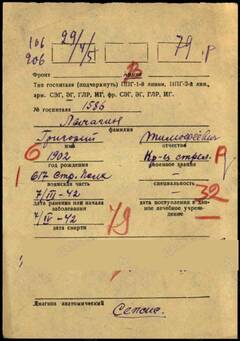 106
206
29/5
79
.р
Фронт армия
Тип госпиталя (подчеркнуть) ППГ-1-й линии, ППГ-2-й лин.,
арм. СЭГ, ЭГ, ГЛР, ИГ, фр. СЭГ, ЭГ, ГЛР, ИГ.
№ госпиталя 1586
фамилия
Григорий Тимофеевич
имя отчество
1902 Кр-ц стрел.
год рождения военное звание
617 Стр. Полк
воинская часть специальность
7/III-42
32
дата ранения или начала заболевания
дата поступления в данное лечебное учреждение
7/IV-42
дата смерти
79
Диагноз анатомический Сепсис.